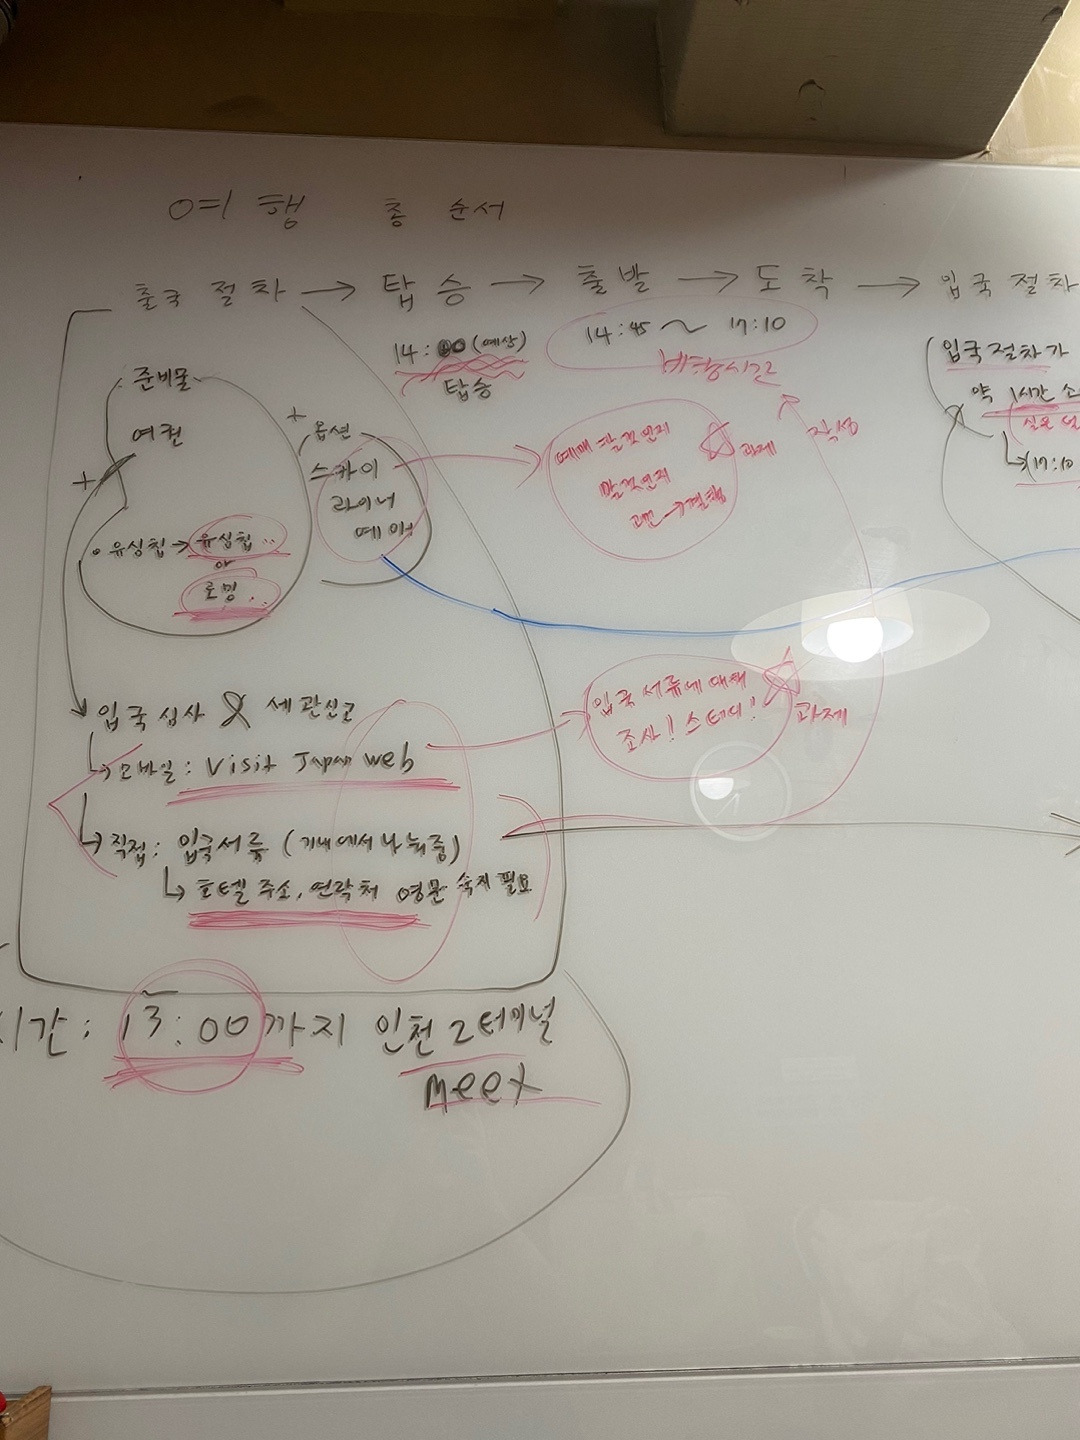 여행 총 순서
출국 절차 → 탑승 → 출발 → 도착 → 입국절차
14:00 (예상)
탑승
14:45 ~ 17:10
비행시간
입국절차가
약 1시간 소
↳ 17:10
준비물
여권
+
유심칩 → 유심칩..
or
로밍..
+ 옵션
스카이
라이너
예매
예매 할것인지
말것인지
고민 → 결정
☆ 과제
작성
↳ 입국심사 & 세관신고
↳ 모바일: Visit Japan web
↳ 직접: 입국서류 (기내에서 나눠줌)
↳ 호텔 주소, 연락처 영문 숙지 필요
입국 서류에 대해
조사! 스터디!
☆ 과제
시간: 13:00까지 인천 2터미널
meet